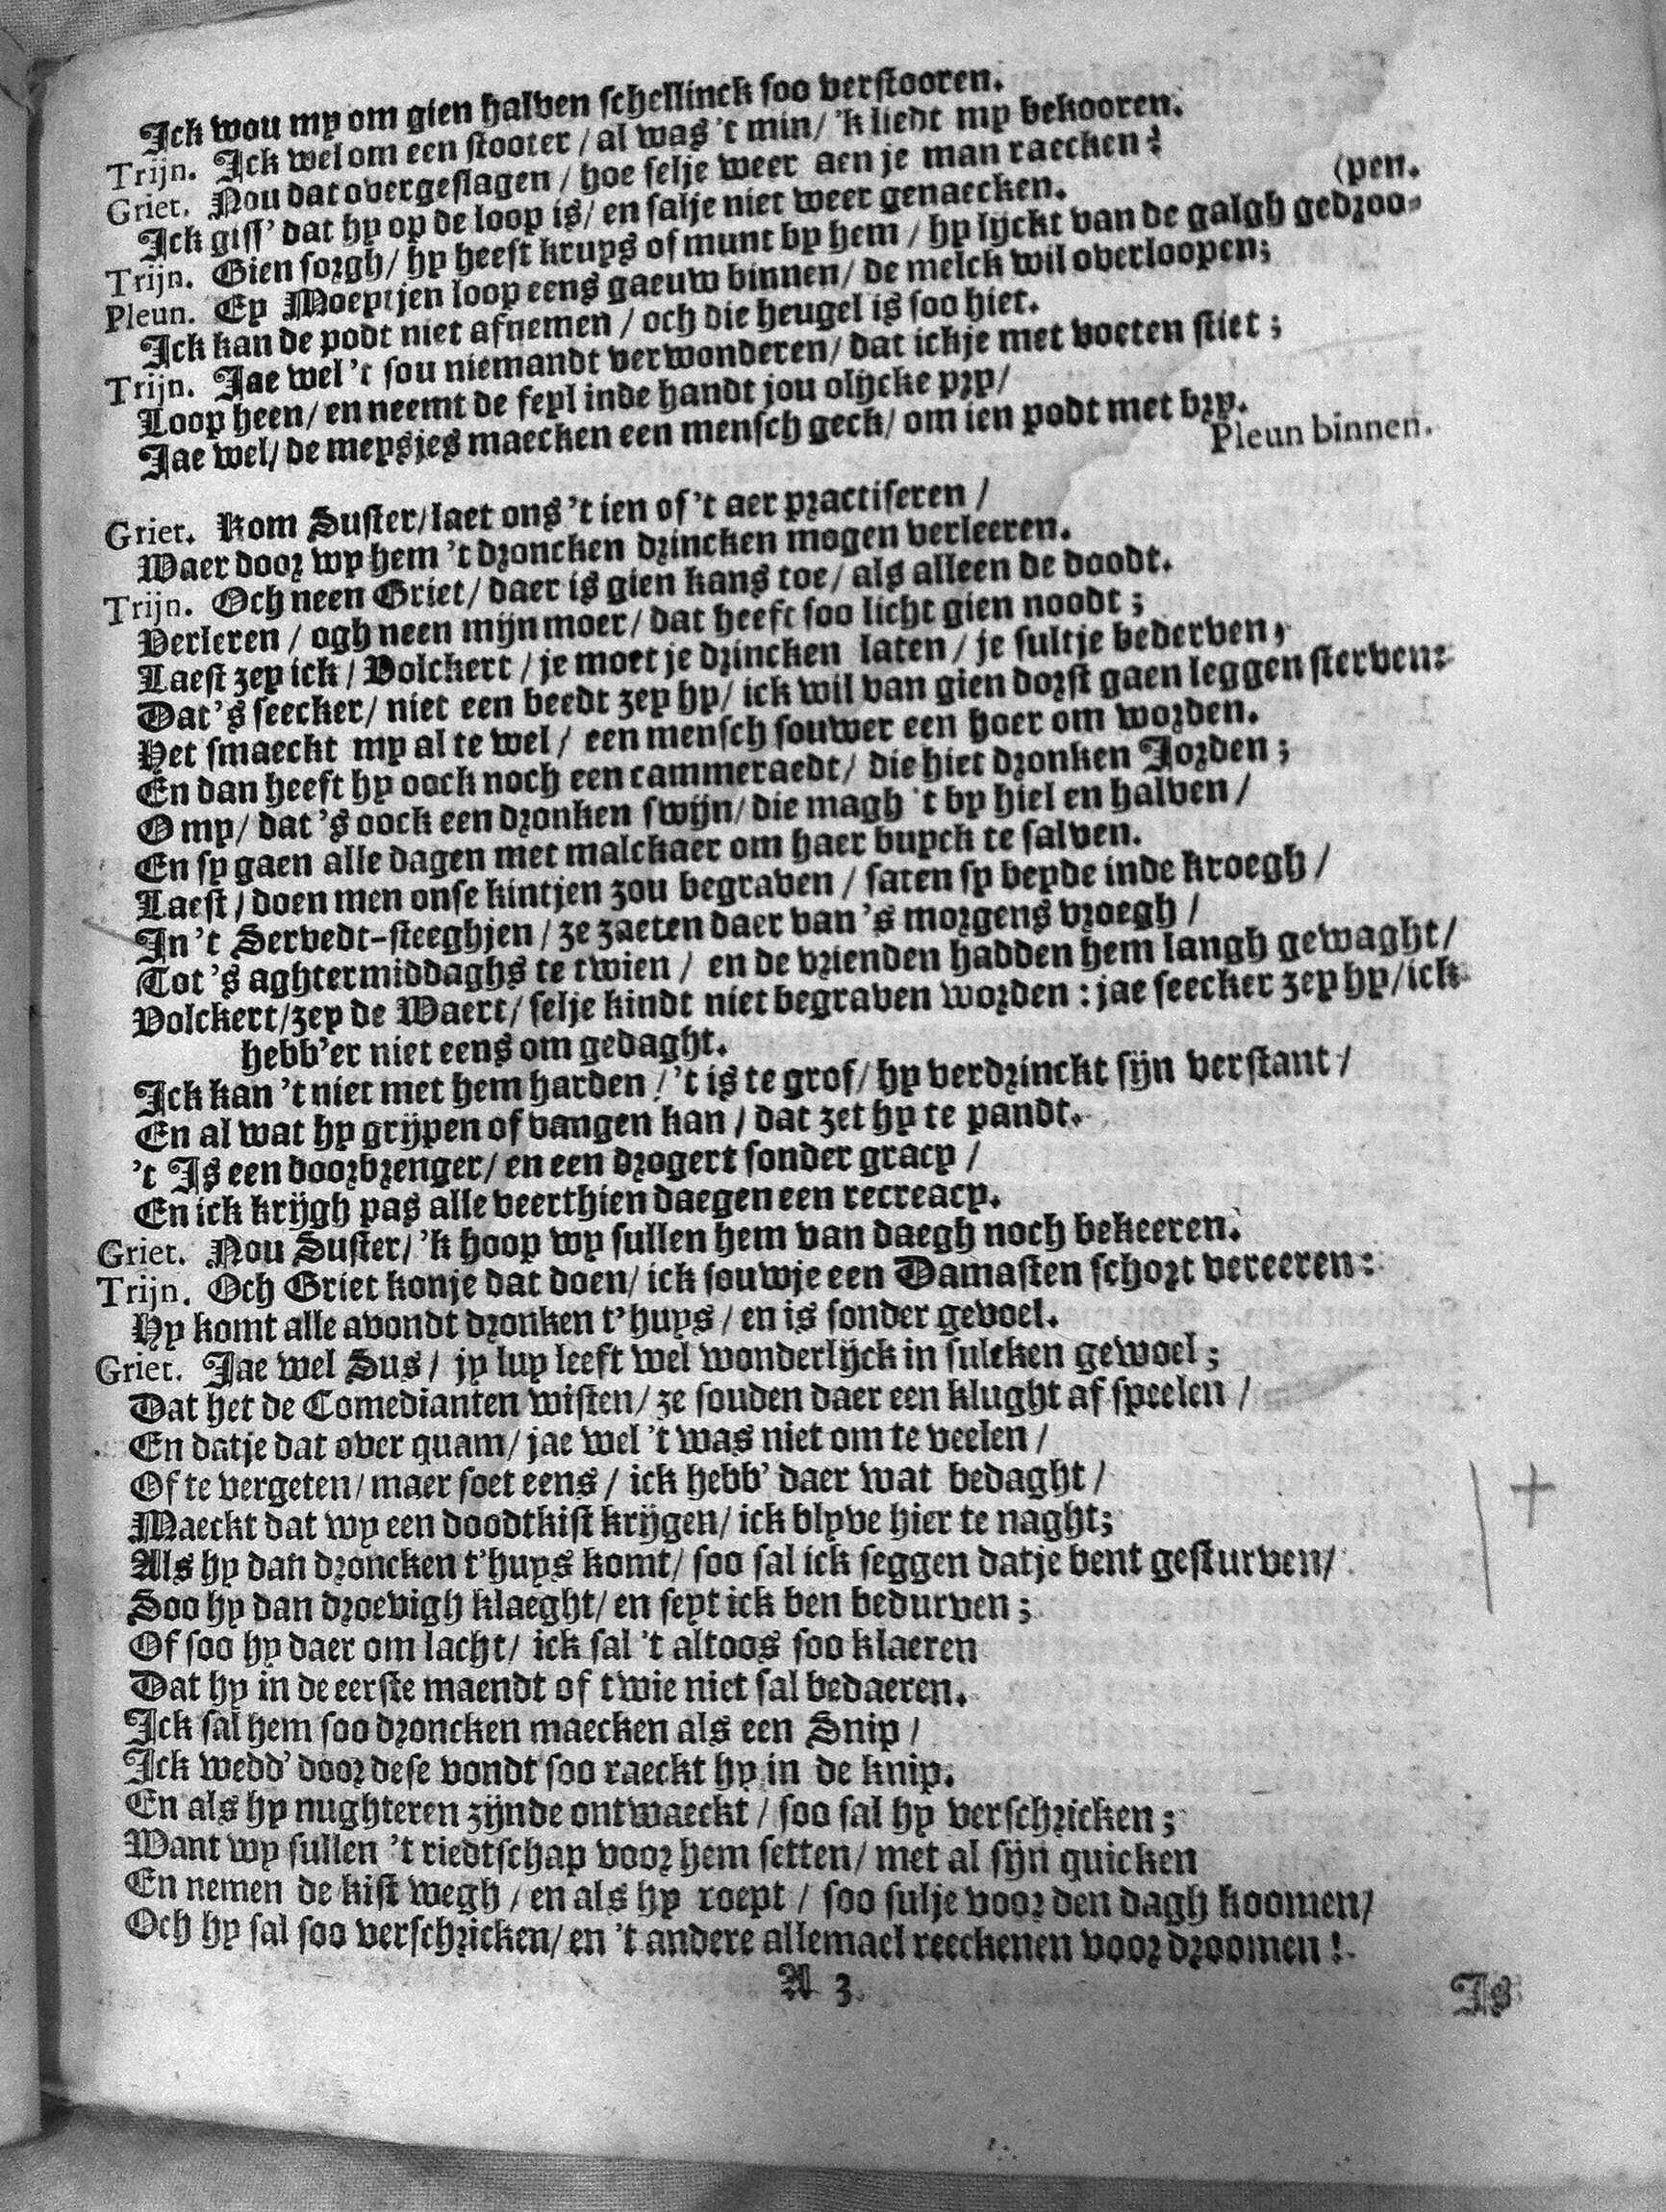 Ick wou my om gien halven schellinck soo verstooren.
Trijn. Ick wel om een stooter / al was 't min / 'k liedt my bekooren.
Griet. Nou dat overgeslagen / hoe selje weer aen je man raecken?
Ick giss' dat hy op de loop is / en salje niet weer genaecken. (pen.
Trijn. Gien sorgh / hy heeft kruys of munt by hem / hy lijckt van de galgh gedroo-
Pleun. Ey Moeytjen loop eens gaeuw binnen / de melck wil overloopen;
Ick kan de podt niet afnemen / och die heugel is soo hiet.
Trijn. Jae wel 't sou niemandt verwonderen / dat ickje met voeten stiet;
Loop heen / en neemt de feyl inde handt jou olijcke pry /
Jae wel / de meysjes maecken een mensch geck / om ien podt met bry.
Pleun binnen.
Griet. Kom Suster / laet ons 't ien of 't aer practiseren /
Waer door wy hem 't droncken drincken mogen verleeren.
Trijn. Och neen Griet / daer is gien kans toe / als alleen de doodt.
Verleren / ogh neen mijn moer / dat heeft soo licht gien noodt;
Laest zey ick / Volckert / je moet je drincken laten / je sultje bederven,
Dat's seecker / niet een beedt zey hy / ick wil van gien dorst gaen leggen sterven:
Het smaeckt my al te wel / een mensch souwer een hoer om worden.
En dan heeft hy oock noch een cammeraedt / die hiet dronken Jorden;
O my / dat 's oock een dronken swijn / die magh 't by hiel en halven /
En sy gaen alle dagen met malckaer om haer buyck te salven.
Laest / doen men onse kintjen zou begraven / saten sy beyde inde kroegh /
In 't Servedt-steeghjen / ze zaeten daer van 's morgens vroegh /
Tot 's aghtermiddaghs te twien / en de vrienden hadden hem langh gewaght /
Volckert / zey de Waert / selje kindt niet begraven worden: jae seecker zey hy / ick
hebb'er niet eens om gedaght.
Ick kan 't niet met hem harden / 't is te grof / hy verdrinckt sijn verstant /
En al wat hy grijpen of vangen kan / dat zet hy te pandt.
't Is een doorbrenger / en een drogert sonder gracy /
En ick krijgh pas alle veerthien daegen een recreacy.
Griet. Nou Suster / 'k hoop wy sullen hem van daegh noch bekeeren.
Trijn. Och Griet konje dat doen / ick souwje een Damasten schort vereeren:
Hy komt alle avondt dronken t'huys / en is sonder gevoel.
Griet. Jae wel Sus / jy luy leeft wel wonderlijck in sulcken gewoel;
Dat het de Comedianten wisten / ze souden daer een klught af speelen /
En datje dat over quam / jae wel 't was niet om te veelen /
Of te vergeten / maer soet eens / ick hebb' daer wat bedaght /
Maeckt dat wy een doodtkist krijgen / ick blyve hier te naght;
Als hy dan droncken t'huys komt / soo sal ick seggen datje bent gesturven /
Soo hy dan droevigh klaeght / en seyt ick ben bedurven;
Of soo hy daer om lacht / ick sal 't altoos soo klaeren
Dat hy in de eerste maendt of twie niet sal bedaeren.
Ick sal hem soo droncken maecken als een Snip /
Ick wedd' door dese vondt soo raeckt hy in de knip.
En als hy nughteren zijnde ontwaeckt / soo sal hy verschricken;
Want wy sullen 't riedtschap voor hem setten / met al sijn quicken
En nemen de kist wegh / en als hy roept / soo sulje voor den dagh koomen /
Och hy sal soo verschricken / en 't andere allemael reeckenen voor droomen!
A 3
Is